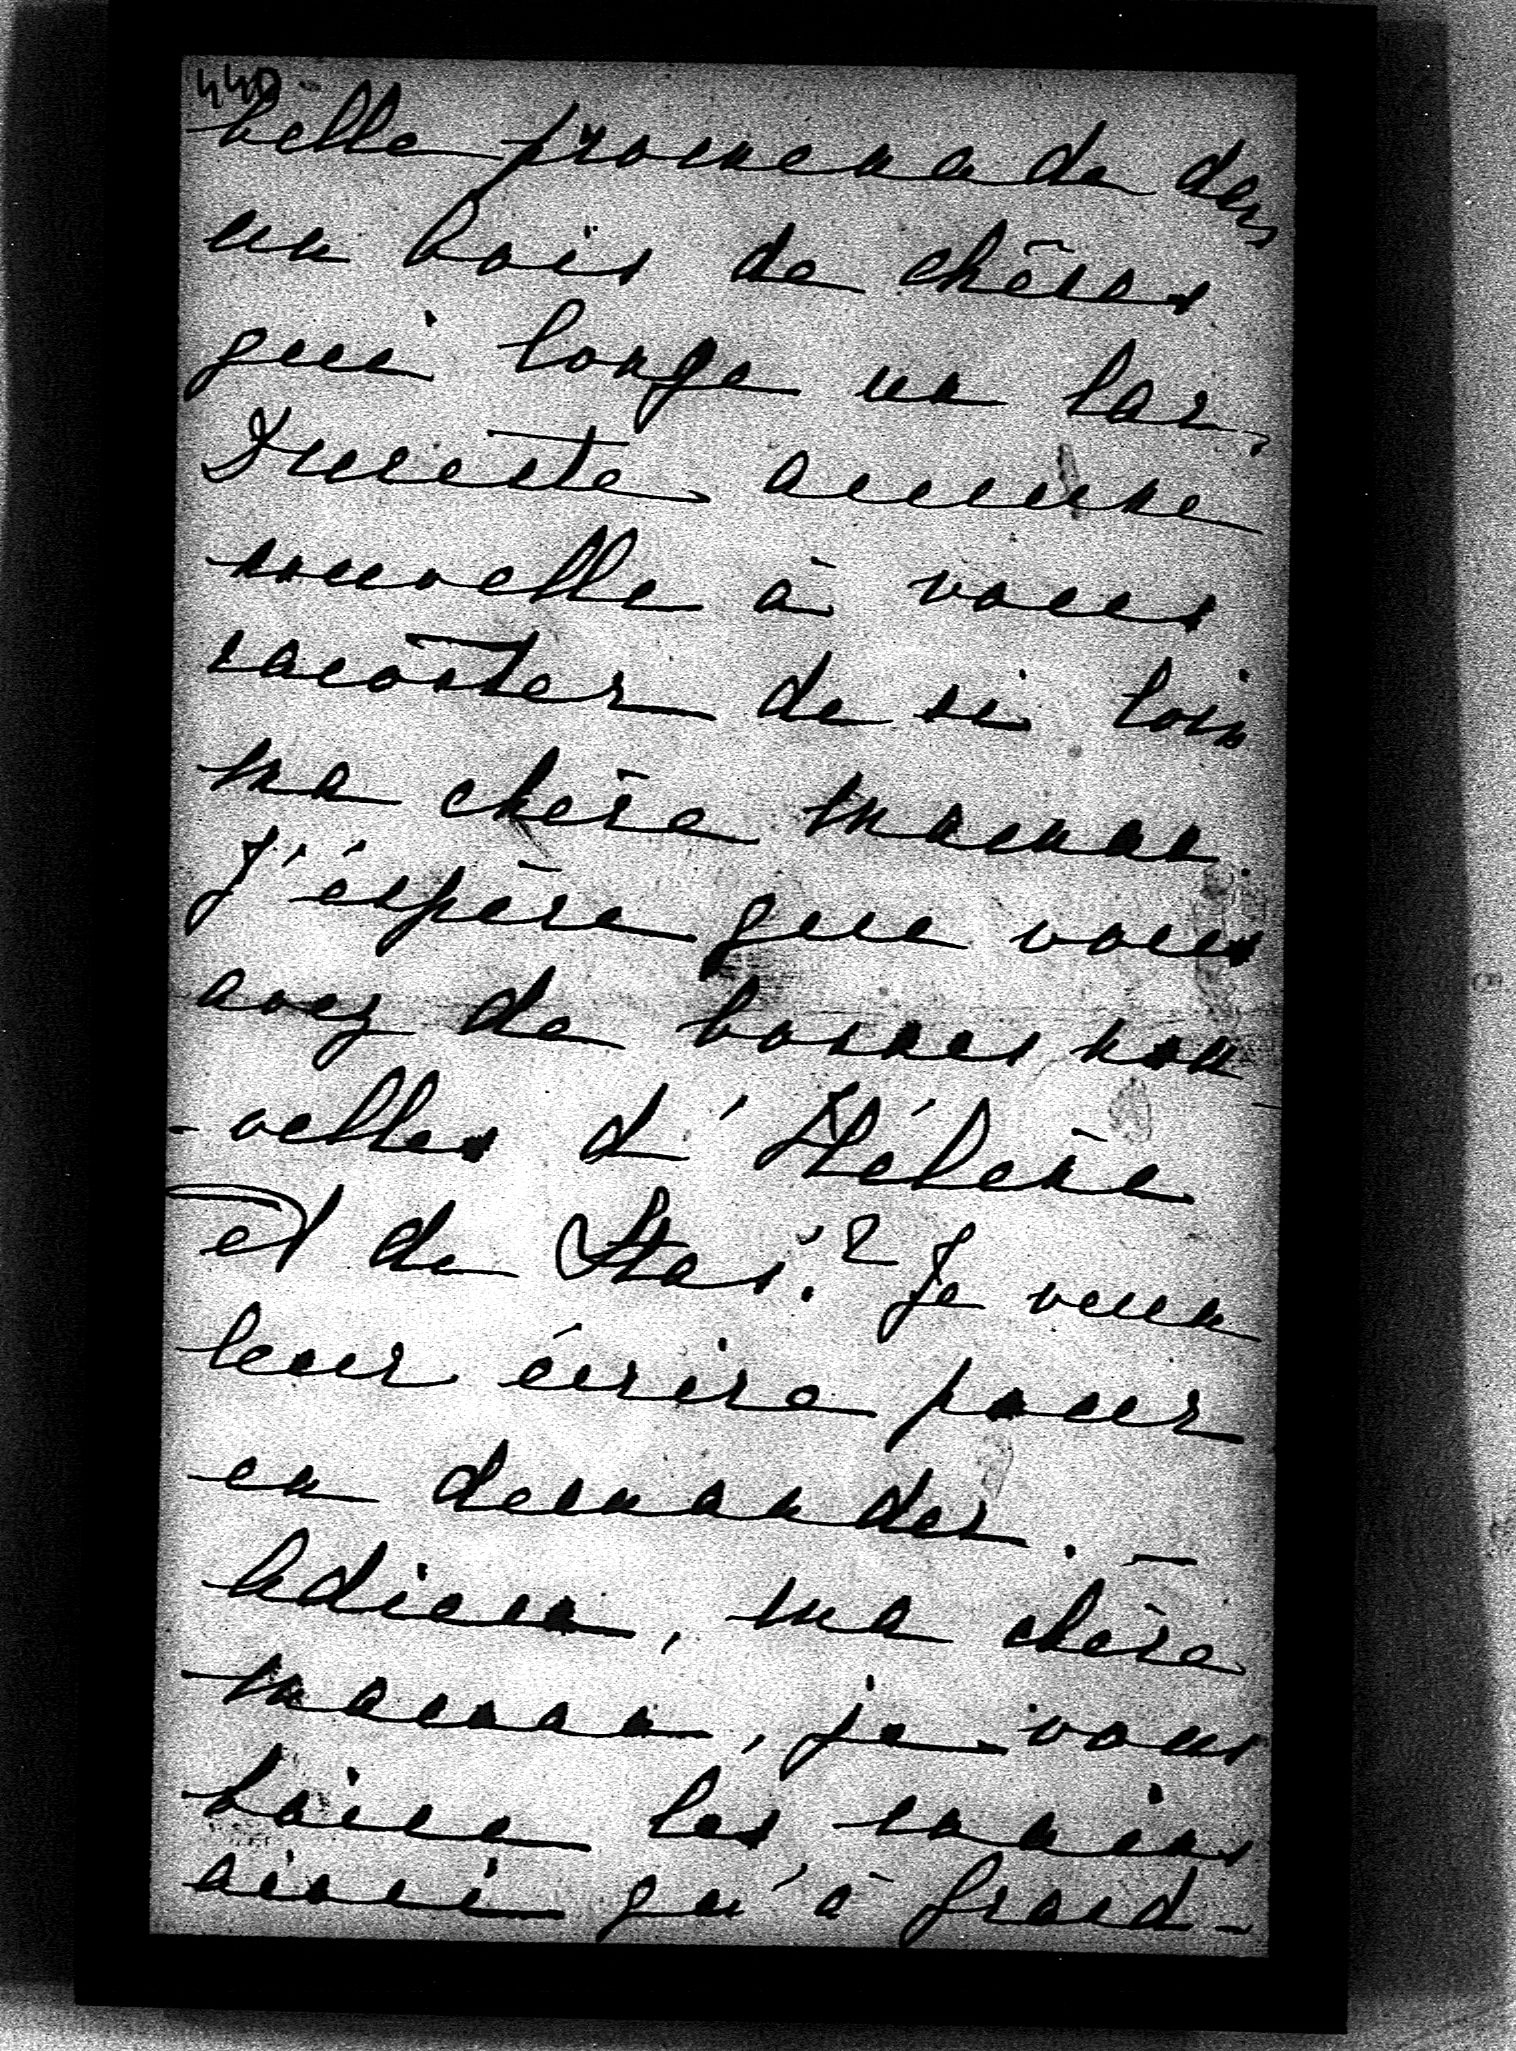 440
belle promenade dans
un bois de chênes
qui longe un lac.
Du reste aucune
nouvelle à vous
raconter de si loin
ma chère maman.
J'éspère que vous
avez de bonnes nou
-velles d'Hélène
et de Stas.? Je veux
leur écrire pour
en demander. —
Adieux, ma chère
maman, je vous
baise les mains
ainsi qu'à grand-